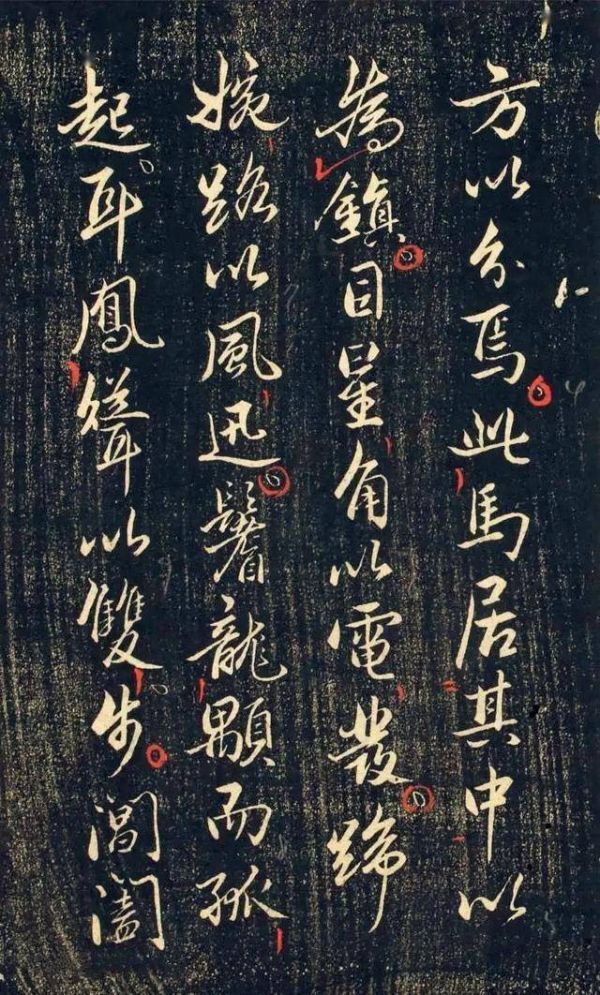 方以分焉此馬居其中以
為鎮目星角以電發蹄
椀踣以風迅鬐龍顒而孤
起耳鳳聳以雙步閶闔